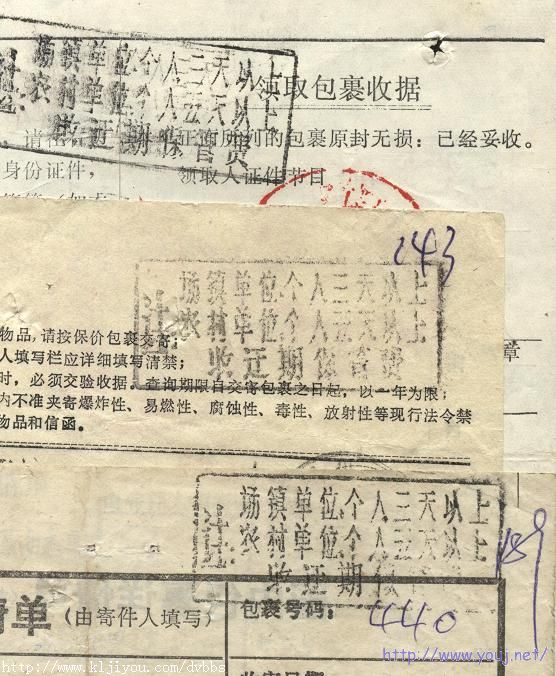 场镇单位个人三天以上
农村单位个人五天以上
收迂期保管费
领取包裹收据
正面所列的包裹原封无损：已经妥收。
身份证件，
领取人证件节目
243
注：
场镇单位个人三天以上
农村单位个人五天以上
收迂期保管费
物品，请按保价包裹交寄；
人填写栏应详细填写清楚；
时，必须交验收据，查询期限自交寄包裹之日起，以一年为限；
内不准夹寄爆炸性、易燃性、腐蚀性、毒性、放射性等现行法令禁
物品和信函。
章
注：
场镇单位个人三天以上
农村单位个人五天以上
收迂期保
单（由寄件人填写）
包裹号码：
440
http://www.youj.net/
http://www.kljiyou.com/dvbbs